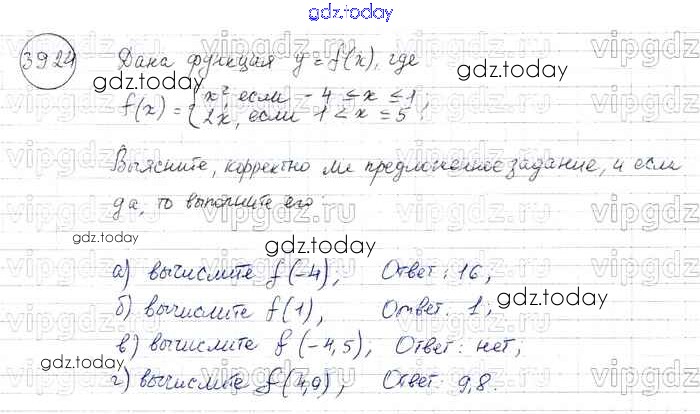 gdz.today
39.24 Дана функция y = f(x), где
f(x) = { x², если -4 ≤ x ≤ 1,
2x, если 1 < x ≤ 5;
Выясните, корректно ли предложенное задание, и если
да, то выполните его:
а) вычислите f(-4), Ответ: 16;
б) вычислите f(1), Ответ: 1;
в) вычислите f(-4,5), Ответ: нет;
г) вычислите f(4,9), Ответ: 9,8.
gdz.today
gdz.today
gdz.today
gdz.today
gdz.today
gdz.today
vipgdz.ru
vipgdz.ru
vipgdz.ru